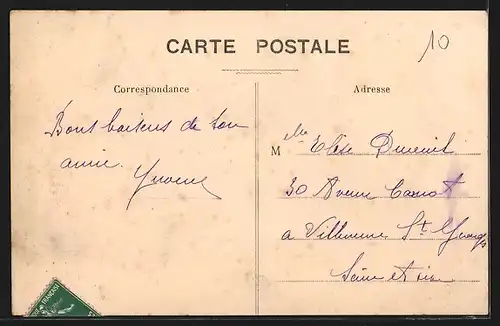 CARTE POSTALE
10
Correspondance
Adresse
Bons baisers de ton
amie.
Yvonne
Melle Elise Dumenil
30 Avenue Carnot
a Villeneuve St Georges
Seine et